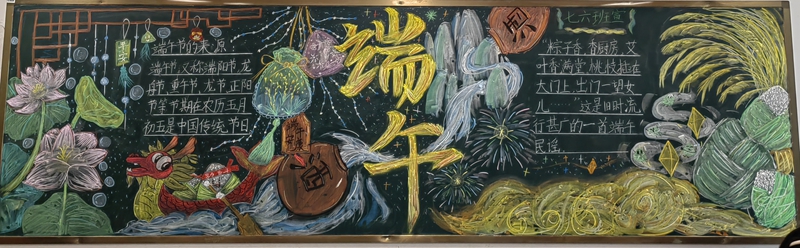 端午节的来原
端午节又称端阳节,龙
舟节 重午节,龙节 正阳
节等节期在农历五月
初五是中国传统节日.
端
午
七六班宣
“粽子香,香厨房,艾
叶香,满堂,桃枝插在
大门上,出门一望麦
儿…… 这是旧时流
行甚广的一首端午
民谣.